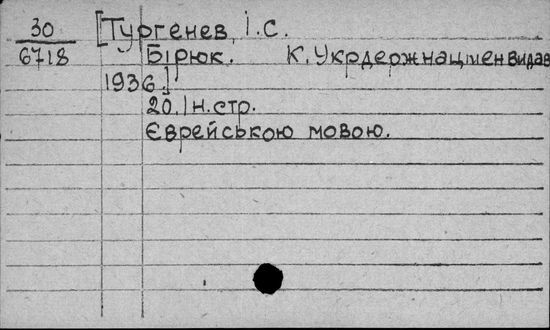 30
6718
[Тургенев, І.С.
Бірюк. К. Укрдержнацменвидав
1936.]
20.1н.стр.
Єврейською мовою.